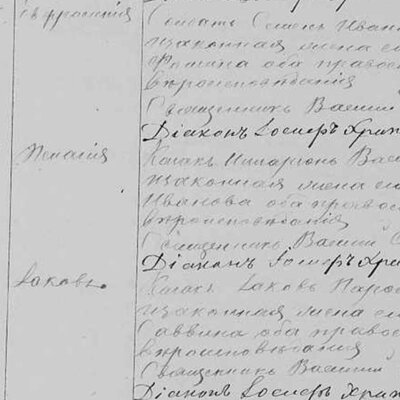 Евфросинія
Солдатъ Семенъ Иван
и законная жена ег
Фомина оба правос
вѣроисповѣданія
Священникъ Васили
Діаконъ Іосифъ Хра
Пелагія
Козакъ Иларіонъ Вас
и законная жена ег
Иванова оба правос
вѣроисповѣданія
Священникъ Васили
Діаконъ Іосифъ Хра
Іаковъ
Козакъ Іаковъ
и законная жена ег
Саввина оба правос
вѣроисповѣданія
Священникъ Васили
Діаконъ Іосифъ Хра